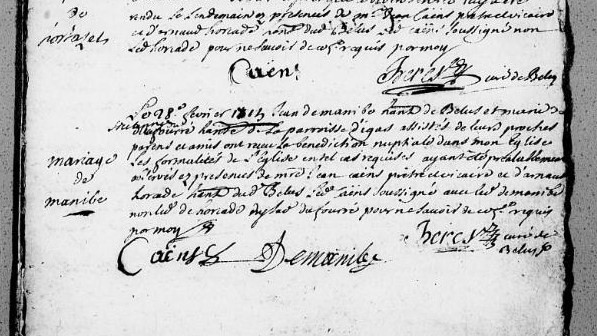 de
rendu Le Lendemain es presences de mre Jean Caëns pretre vicaire
et d'arnaud horcade hant dud Belus Led Caëns soussigné non
Led horcade pour ne savoir de ce requis par moy
Caëns
Beres curé de Belus
Le 28e fevrier Jean demanibe hant de Belus et marie de
hante de La parroisse d'igas assistés de leurs proches
parens et amis ont receu La benediction nuptiale dans mon Eglise
Les formalités de L'Eglise en tel cas requises ayant eté prealablement
observées es presences de mre Jean caëns pretre vicaire et d'arnaud
horcade hant dud Belus Led Caëns soussigné avec Led demanibe
non Led horcade ny Lad dufourré pour ne savoir de ce requis
par moy
mariage
de
manibe
Caëns Demanibe
Beres curé de
Belus